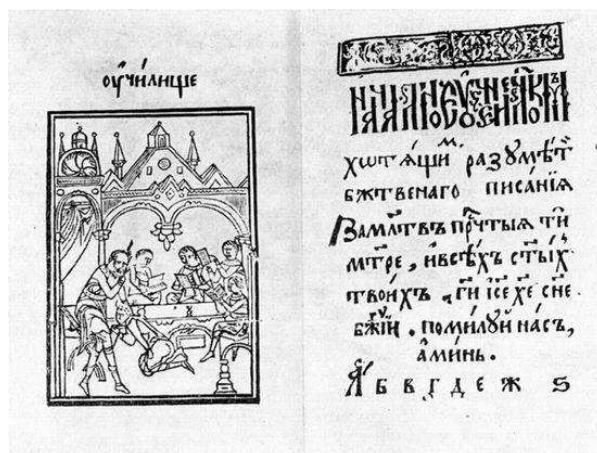 оучи́лище
хотѧ́щимъ разумѣ́т
бж҃твенаго писа́нїѧ
За мл҃твъ пр҃чтыѧ ти
мт҃ре, и҆ всѣ́хъ ст҃ы́х
твои́хъ, гд҃и і҆с҃е хе҃ сн҃е
бж҃їи, поми́луй на́съ,
а҆ми́нь.
А҆ б в г д е ж ѕ